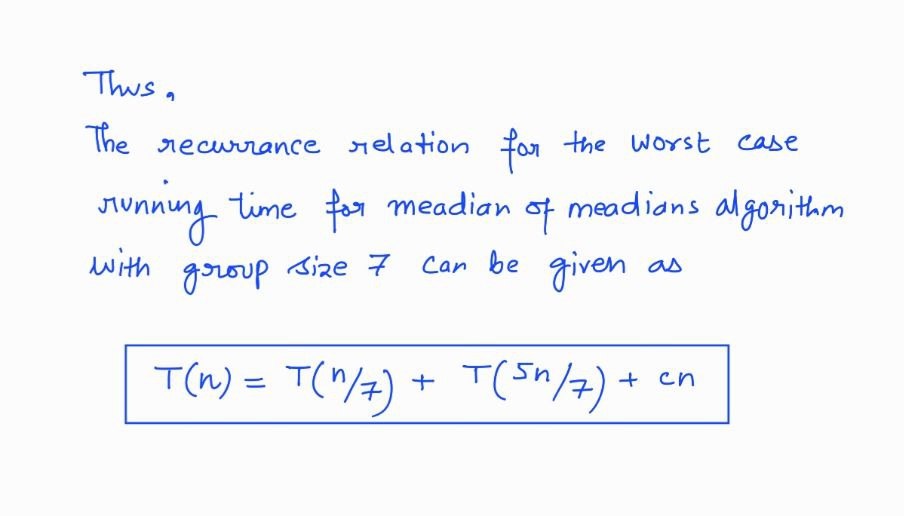 Thus,
The recurrance relation for the worst case
running time for meadian of meadians algorithm
with group size 7 can be given as
T(n) = T(n/7) + T(5n/7) + cn